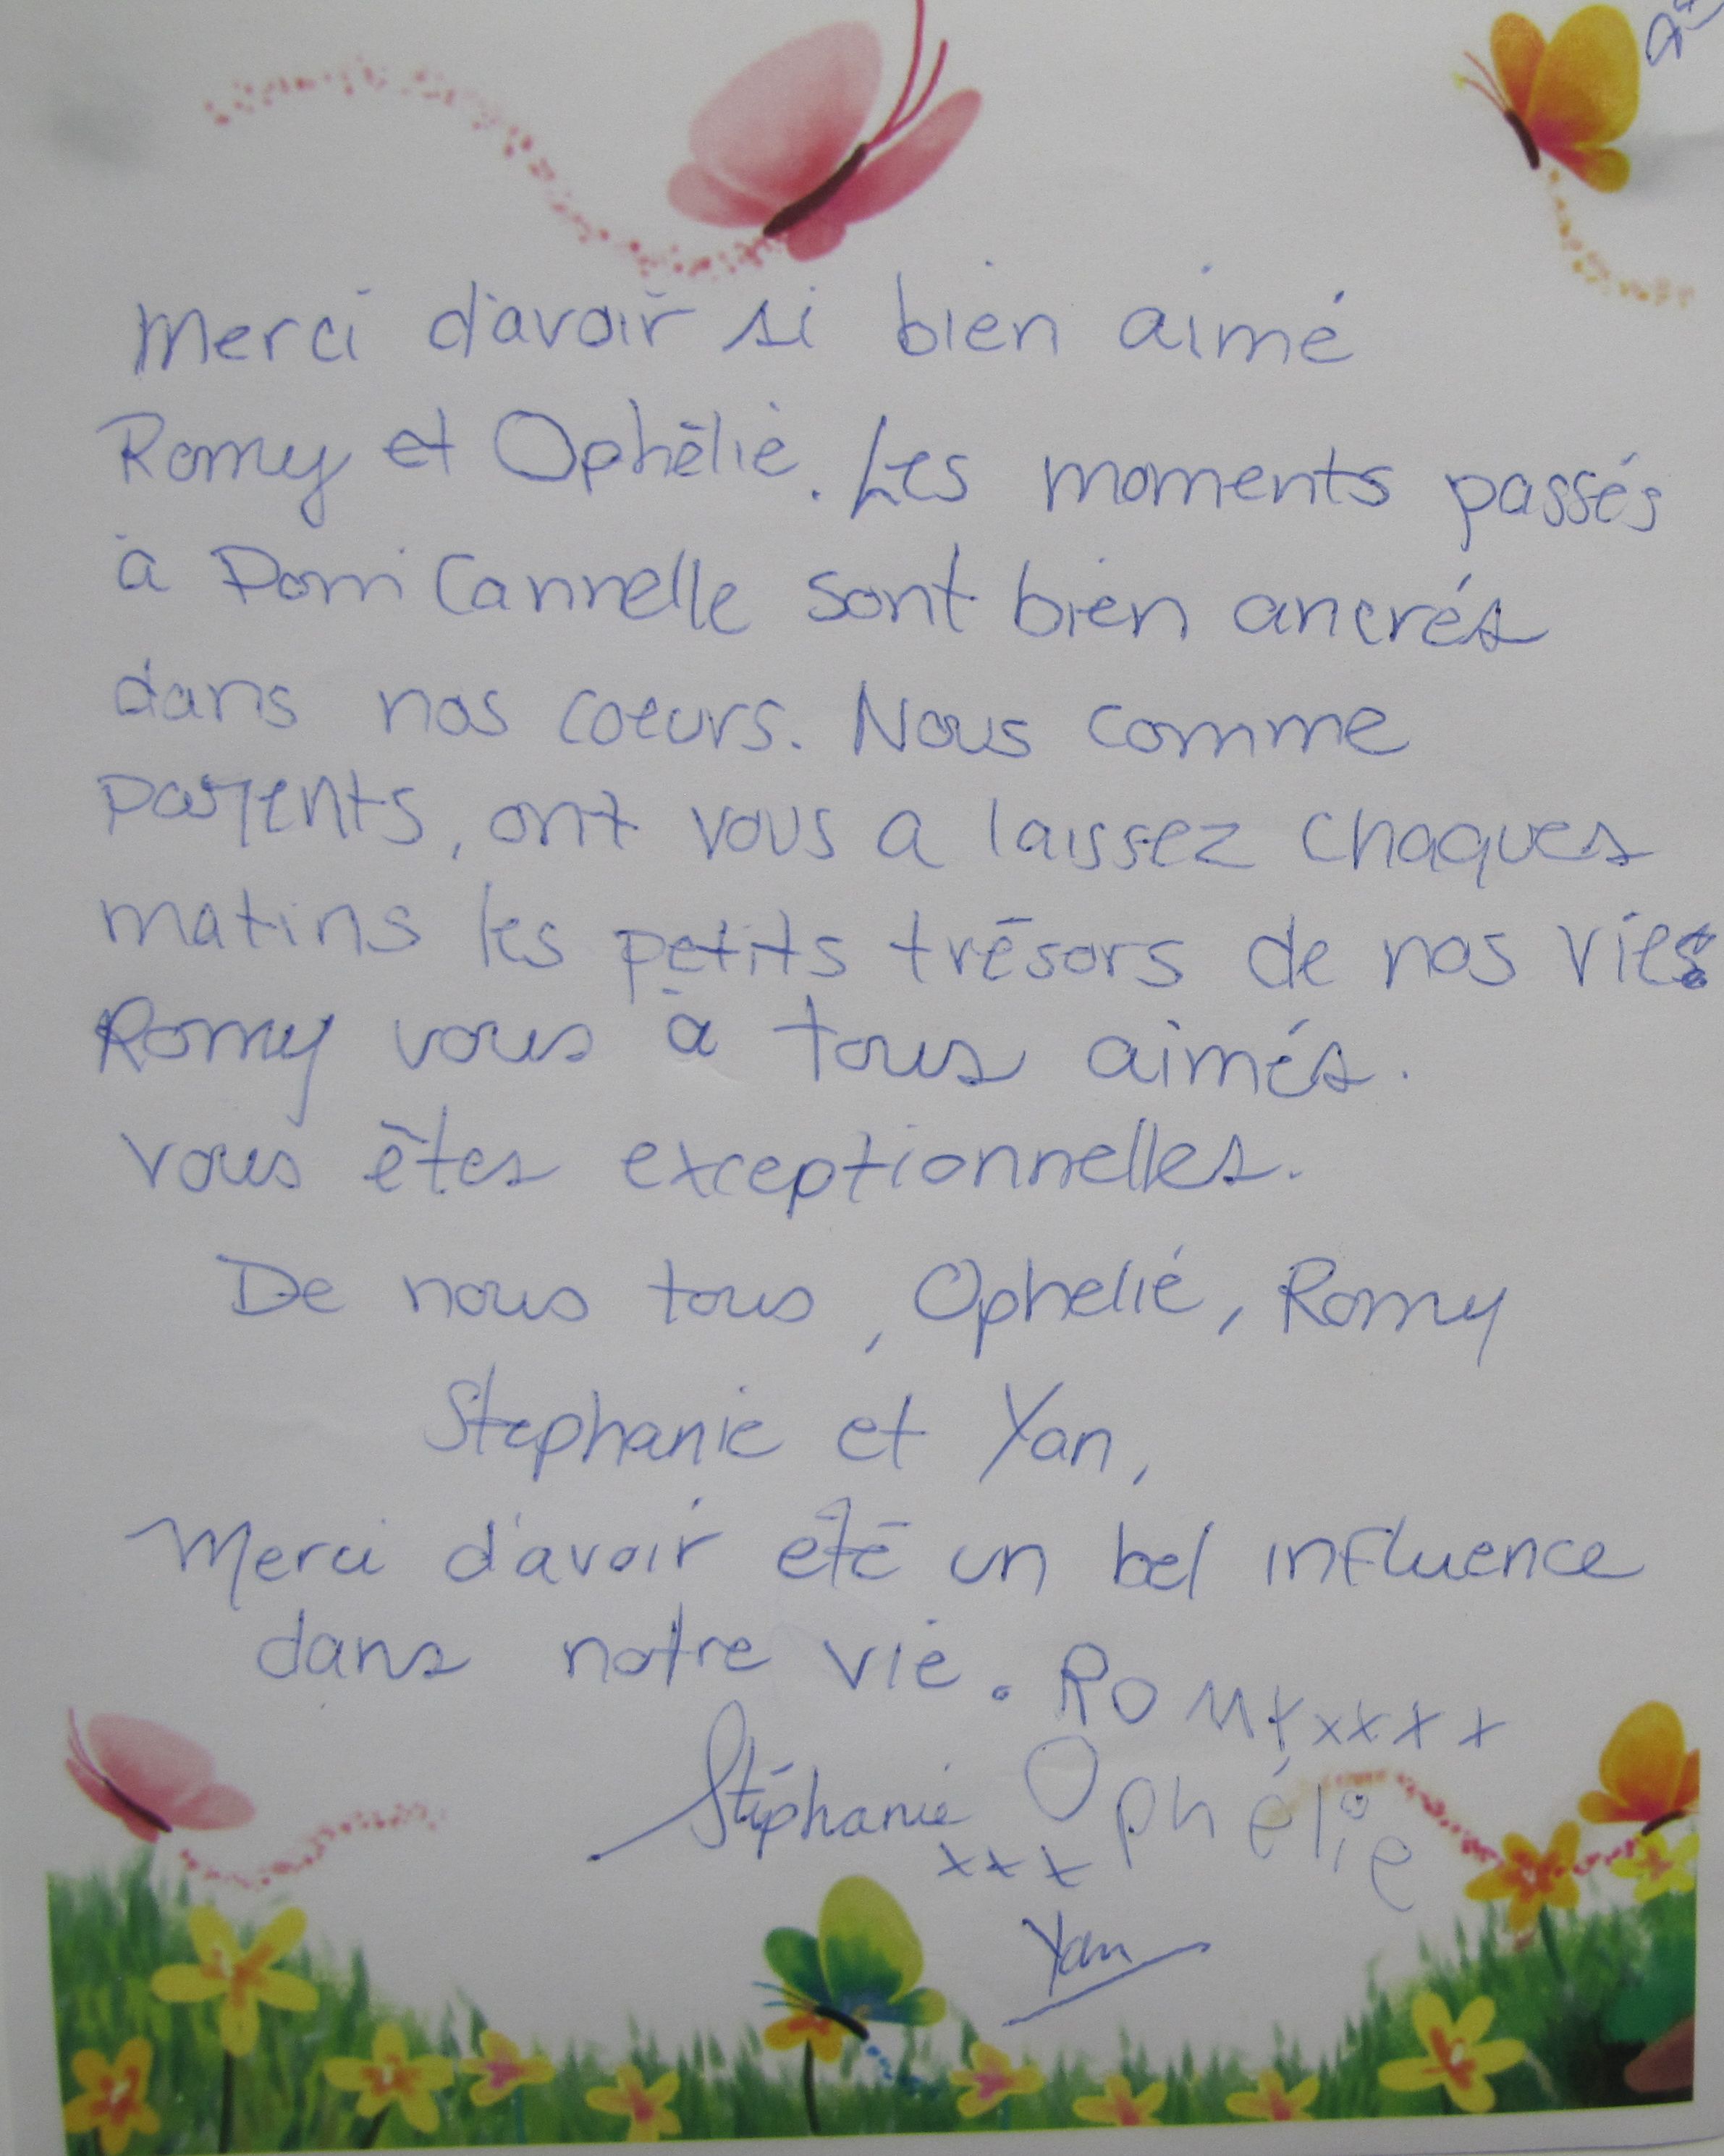 Merci d'avoir si bien aimé
Romy et Ophélie. Les moments passés
à Pomi Cannelle sont bien ancrés
dans nos coeurs. Nous comme
parents, ont vous a laissez chaques
matins les petits trésors de nos vies
Romy vous à tous aimés.
vous êtes exceptionnelles.
De nous tous, Ophelié, Romy
Stephanie et Yan,
Merci d'avoir été un bel influence
dans notre vie. ROMYxxxxx
Stéphanie Ophélie
xxx
Yan